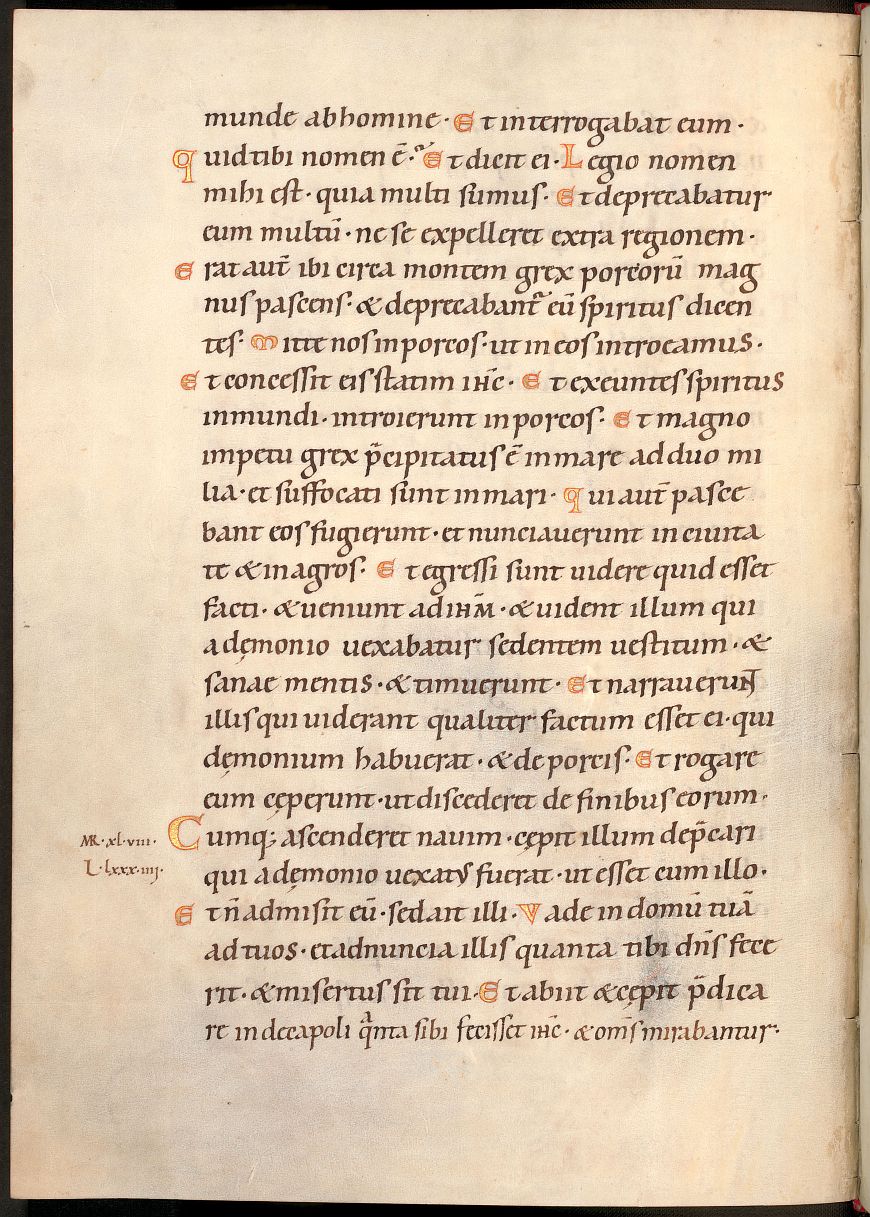 munde abhomine · Et interrogabat eum ·
Quid tibi nomen ē · Et dicit ei · Legio nomen
mihi est · quia multi sumus · Et deprecabatur
eum multū · ne se expelleret extra regionem ·
Erat aut̄ ibi circa montem grex porcorū mag
nus pascens · & deprecabant᷑ eū spiritus dicen
tes · Mitte nos in porcos · ut in eos introeamus ·
Et concessit eis statim ihc̄ · Et exeuntes spiritus
inmundi · introierunt in porcos · Et magno
impetu grex p̄cipitatus ē in mare ad duo mi
lia · et suffocati sunt in mari · Qui aut̄ pasce
bant eos fugierunt · et nunciauerunt in ciuita
te & in agros · Et egressi sunt uidere quid esset
facti · & ueniunt ad ihm̄ · & uident illum qui
a dęmonio uexabatur sedentem uestitum · &
sanae mentis · & timuerunt · Et narrauerunt
illis qui uiderant qualiter factum esset ei · qui
dęmonium habuerat · & de porcis · Et rogare
eum cęperunt · ut discederet de finibus eorum ·
MR · xl · viii ·
L · lxxx · iiij ·
Cumq; ascenderet nauim · cępit illum dep̄cari
qui a dęmonio uexatꝰ fuerat · ut esset cum illo ·
Et n̄ admisit eū · sed ait illi · Vade in domū tuā
ad tuos · et adnuncia illis quanta tibi dn̄s fece
rit · & misertus sit tui · Et abiit & cępit p̄dica
re in decapoli qͣnta sibi fecisset ihc̄ · & om̄s mirabantur ·